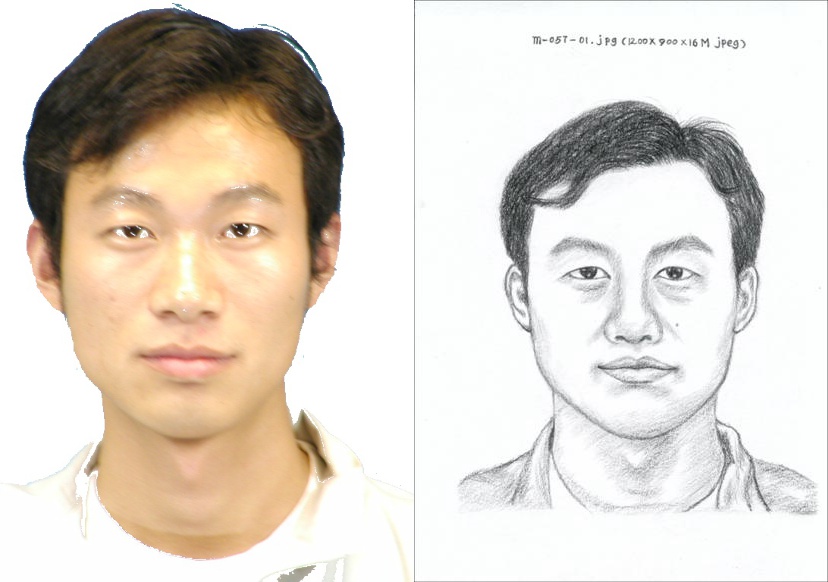 m-057-01.jpg (1200x900x16M jpeg)